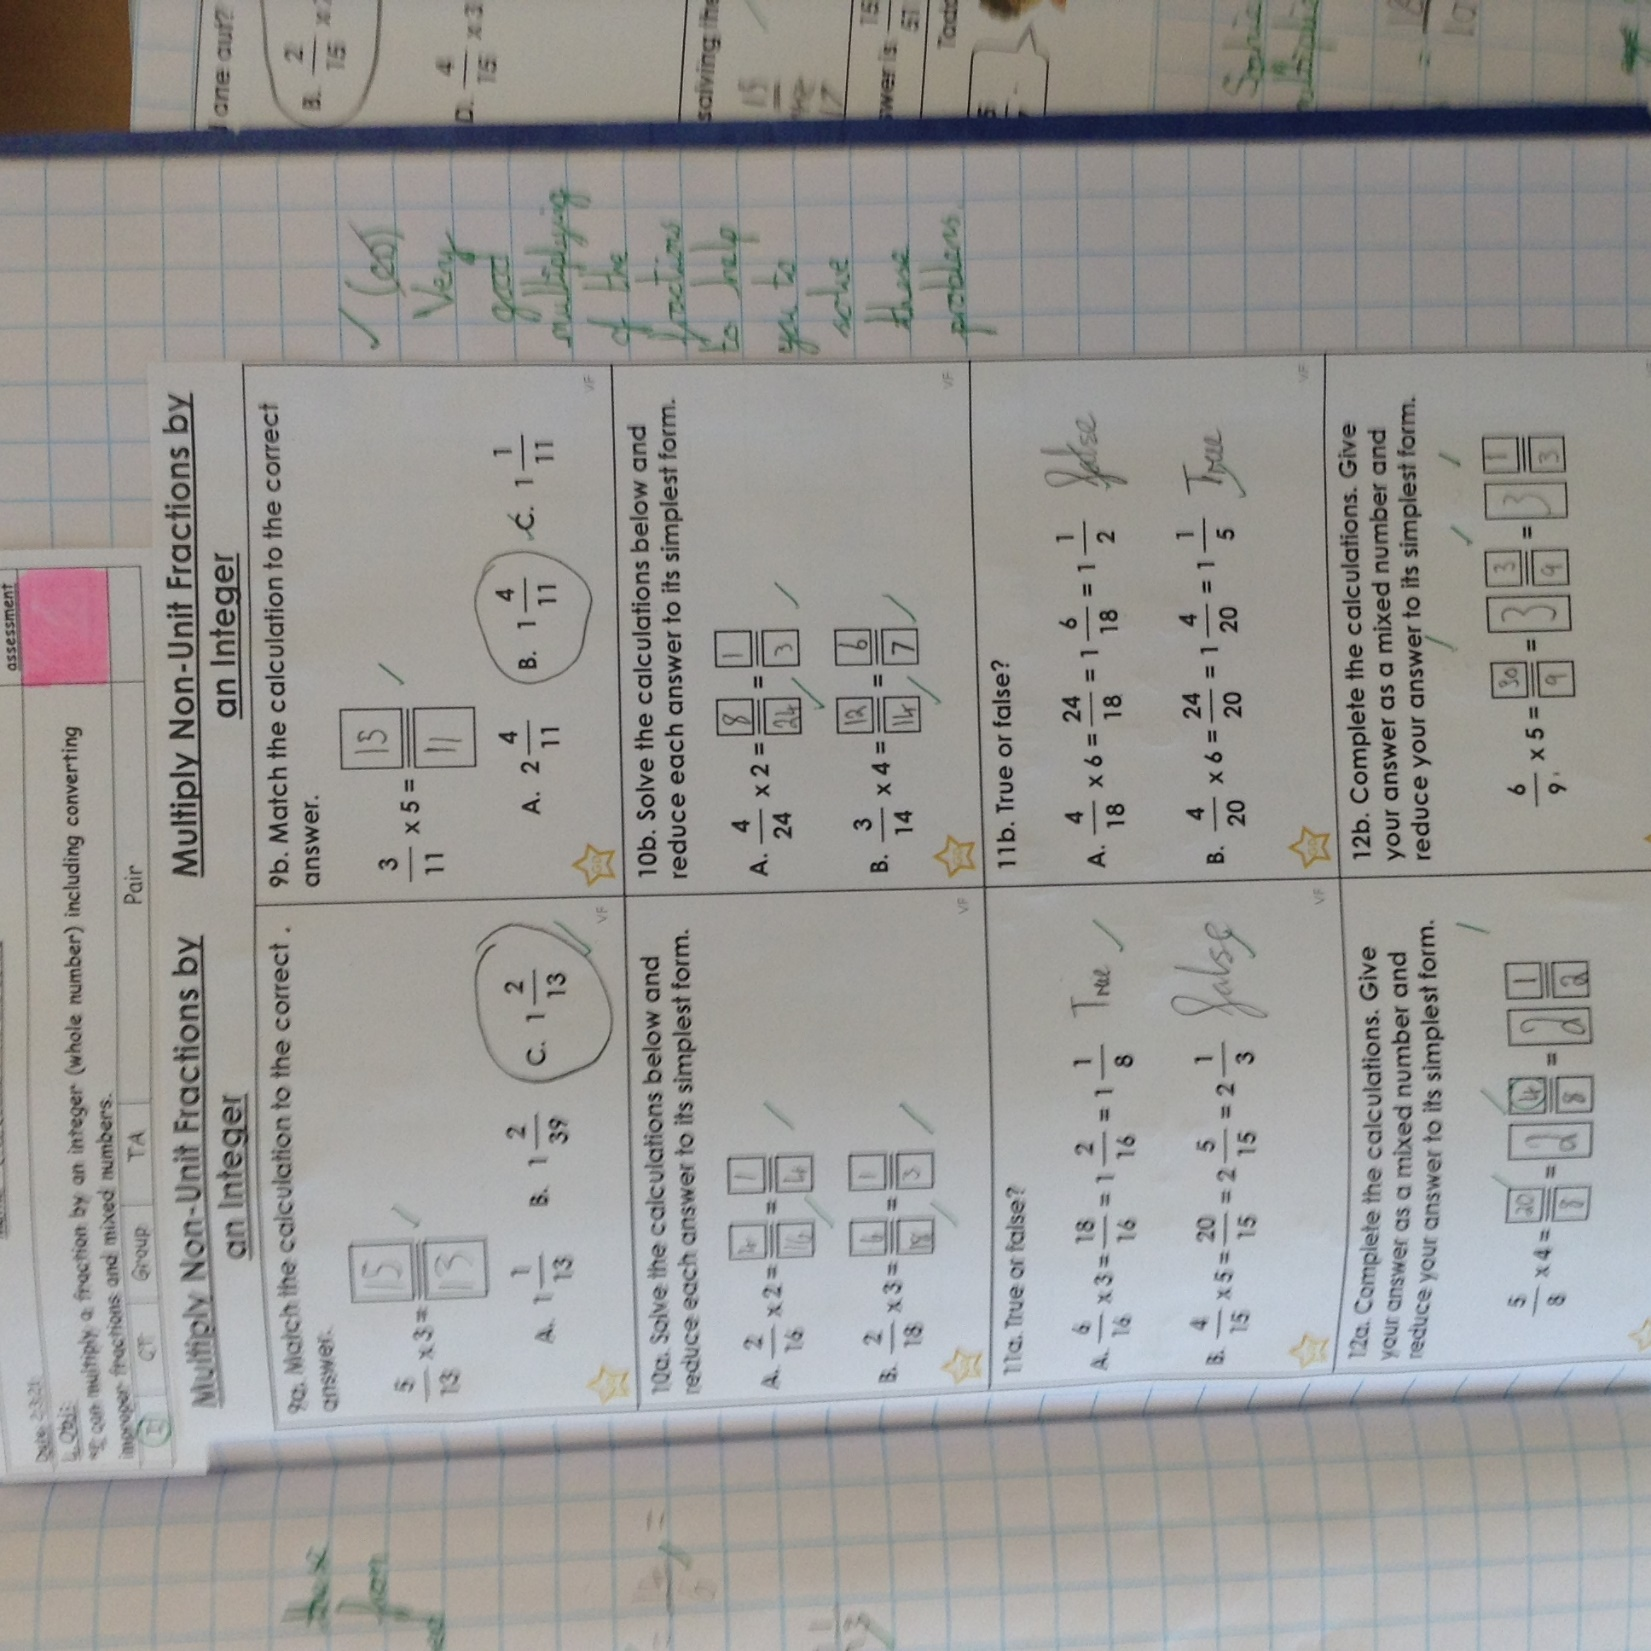 assessment
L. Obj:
"I can multiply a fraction by an integer (whole number) including converting
improper fractions and mixed numbers.
I CT Group TA Pair
Multiply Non-Unit Fractions by
an Integer
9a. Match the calculation to the correct
answer.
5/13 x 3 = 15/13
A. 1 1/13 B. 1 2/39 C. 1 2/13
VF
10a. Solve the calculations below and
reduce each answer to its simplest form.
A. 2/16 x 2 = 4/16 = 1/4
B. 2/18 x 3 = 6/18 = 1/3
VF
11a. True or false?
A. 6/16 x 3 = 18/16 = 1 2/16 = 1 1/8 True
B. 4/15 x 5 = 20/15 = 2 5/15 = 2 1/3 false
VF
12a. Complete the calculations. Give
your answer as a mixed number and
reduce your answer to its simplest form.
5/8 x 4 = 20/8 = 2 4/8 = 2 1/2
Multiply Non-Unit Fractions by
an Integer
9b. Match the calculation to the correct
answer.
3/11 x 5 = 15/11
A. 2 4/11 B. 1 4/11 C. 1 1/11
VF
10b. Solve the calculations below and
reduce each answer to its simplest form.
A. 4/24 x 2 = 8/24 = 1/3
B. 3/14 x 4 = 12/14 = 6/7
VF
11b. True or false?
A. 4/18 x 6 = 24/18 = 1 6/18 = 1 1/2 false
B. 4/20 x 6 = 24/20 = 1 4/20 = 1 1/5 True
VF
12b. Complete the calculations. Give
your answer as a mixed number and
reduce your answer to its simplest form.
6/9 x 5 = 30/9 = 3 3/9 = 3 1/3
Very
good
multiplying
of the
fractions
to help
you to
solve
these
problems.
one out?
B. 2/15 x
D. 4/15 x 3
solving the
swer is